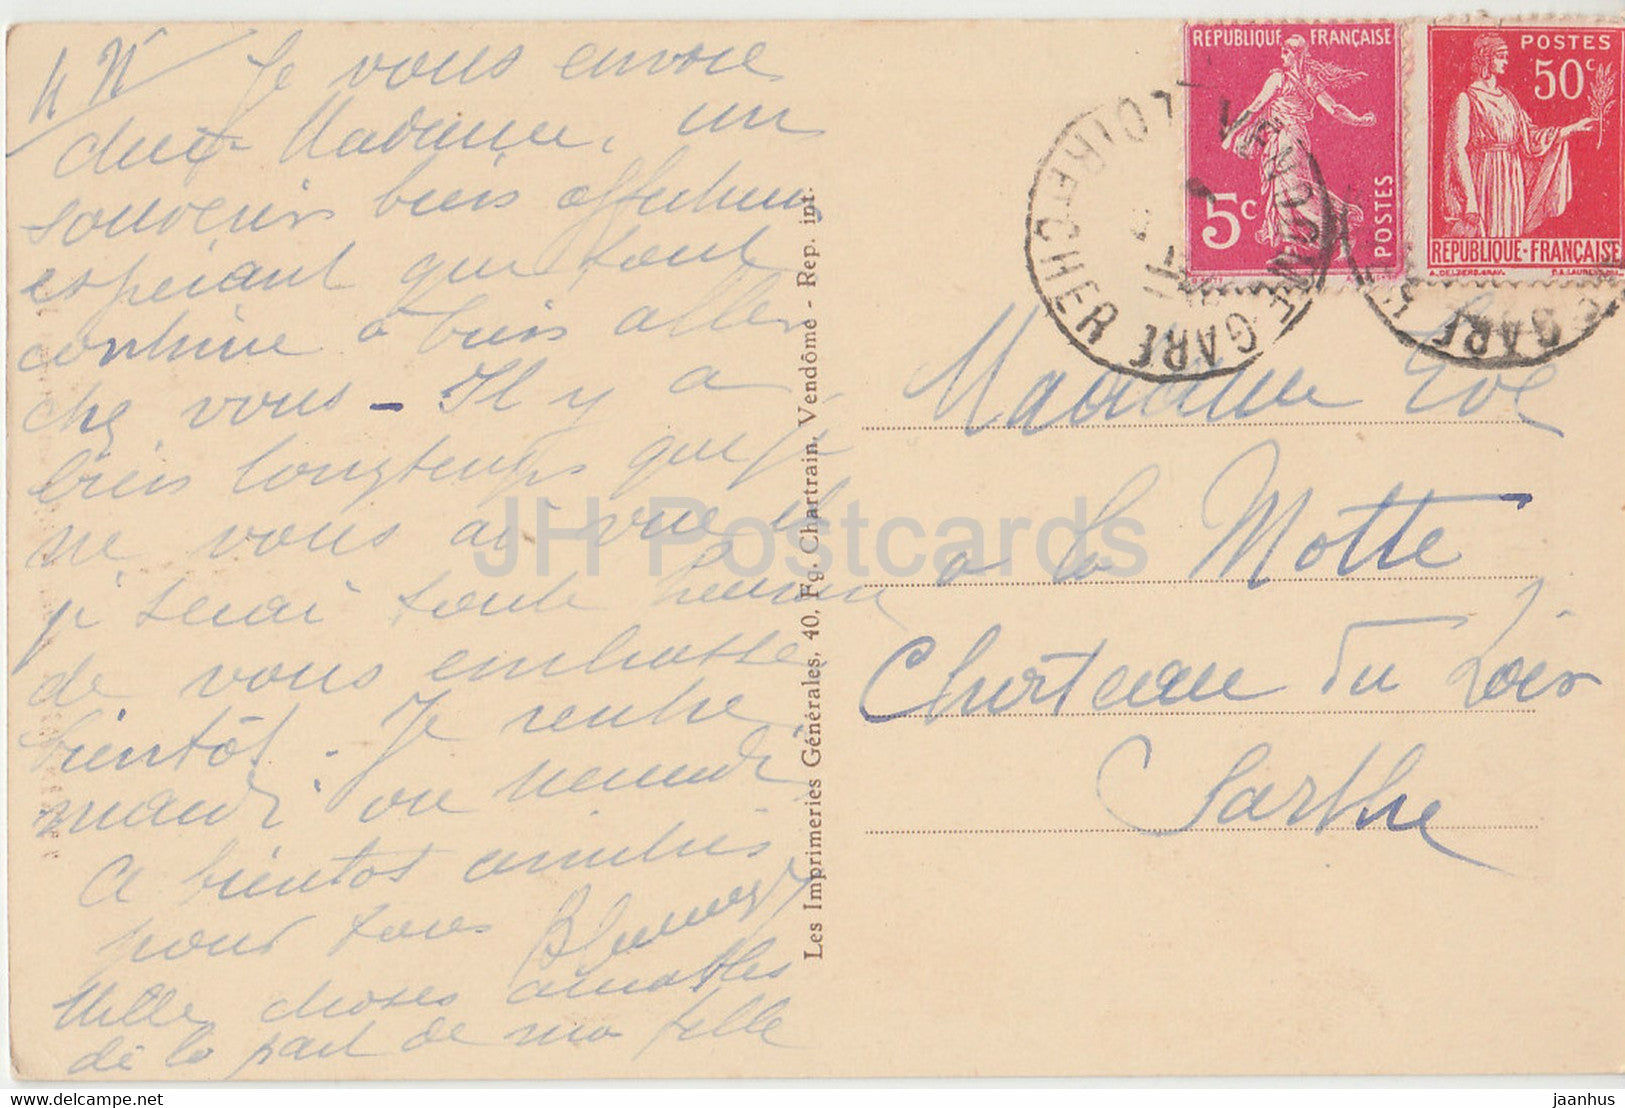 Je vous envoie
chère Madame, un
souvenir bien affectueux
espérant que tout
continue à bien aller
chez vous - Il y a
bien longtemps que je
ne vous ai vue et
je serai toute heureuse
de vous embrasser
bientôt. Je rentre
mardi ou
A bientôt amitiés
pour tous
Mille choses aimables
de la part de ma fille
Les Imprimeries Générales, 40, Fg. Chartrain, Vendôme - Rep. int.
REPUBLIQUE FRANÇAISE
5c
POSTES
POSTES
50c
REPUBLIQUE-FRANÇAISE
VENDOME-GARE
LOIR-ET-CHER
Madame
à la Motte
Château du Loir
Sarthe
JH Postcards
www.delcampe.net
jaanhus